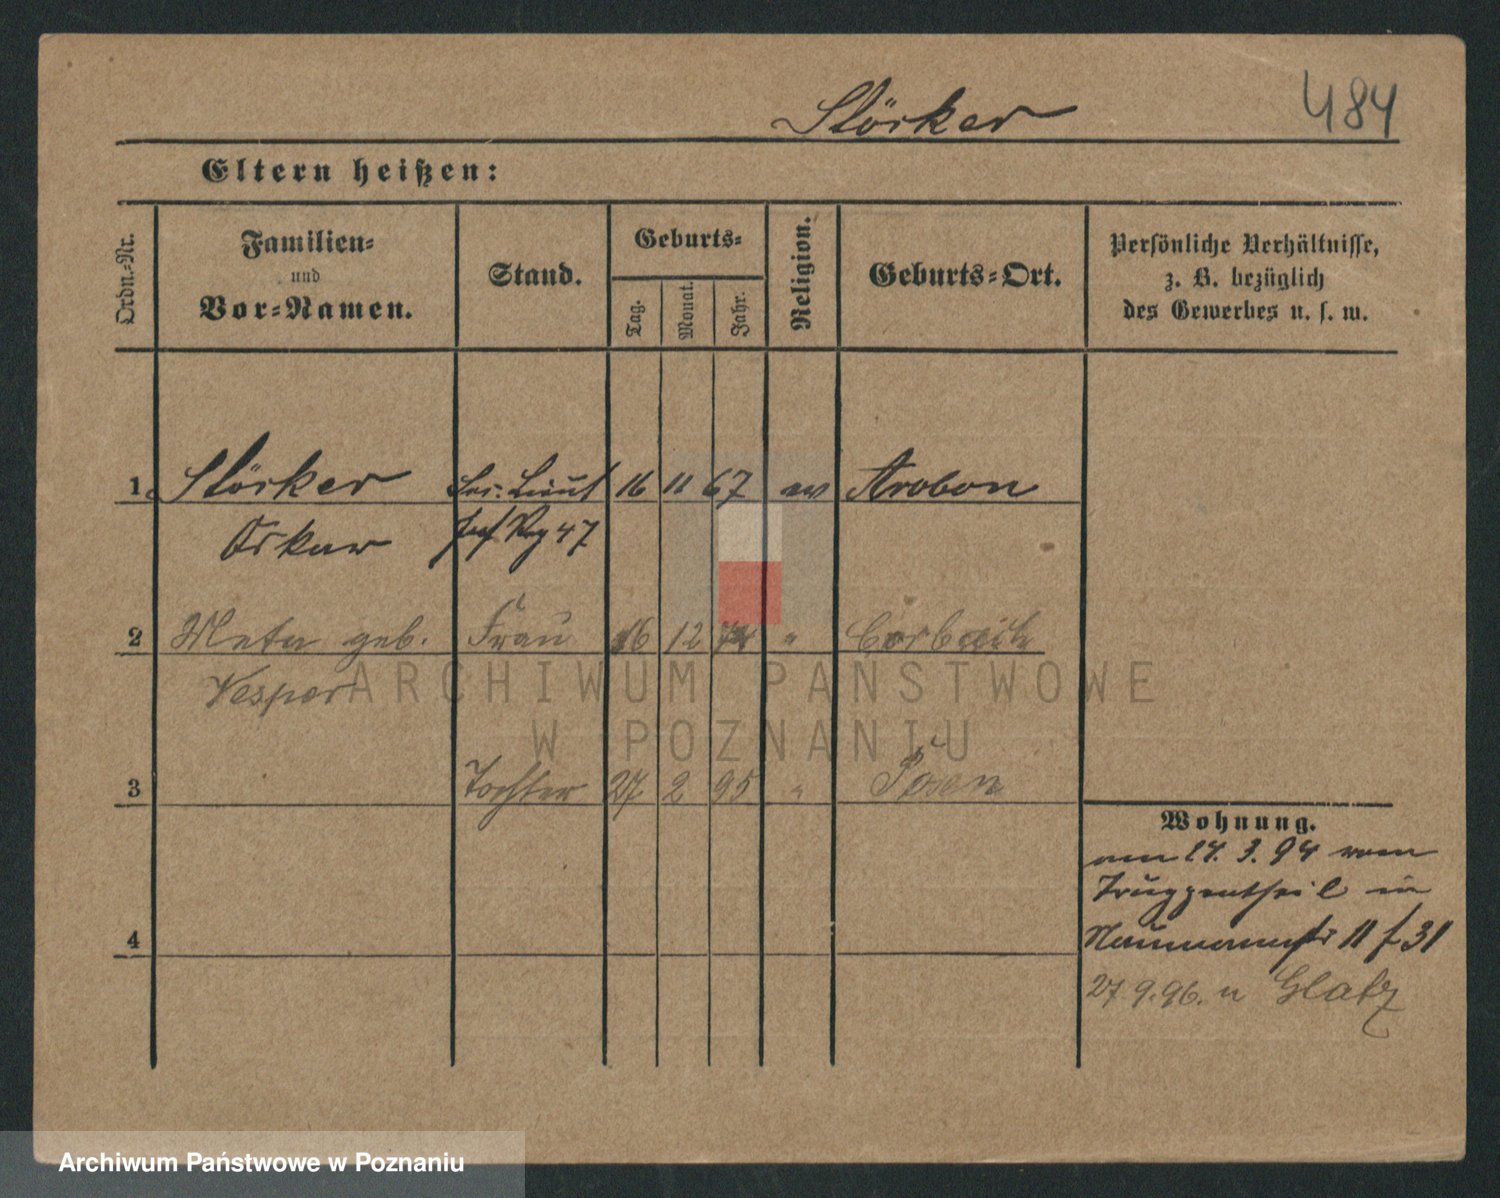 Störker
484
Eltern heißen:
Ordn.-Nr.
Familien-
und
Vor-Namen.
Stand.
Geburts-
Tag.
Monat.
Jahr.
Religion.
Geburts-Ort.
Persönliche Verhältnisse,
z. B. bezüglich
des Gewerbes u. s. w.
1 Störker Sec. Lieut 16 11 67 ev Arobon
Oskar Inf Reg 47
2 Meta geb. Frau 16 12 " Corbach
Vesper
3 Tochter 27 2 95 " Posen
4
Wohnung.
am 17. 3. 94 vom
Truppentheil in
Naumannstr 11 f 31
27. 9. 96. n Glatz
ARCHIWUM PAŃSTWOWE
W POZNANIU
Archiwum Państwowe w Poznaniu